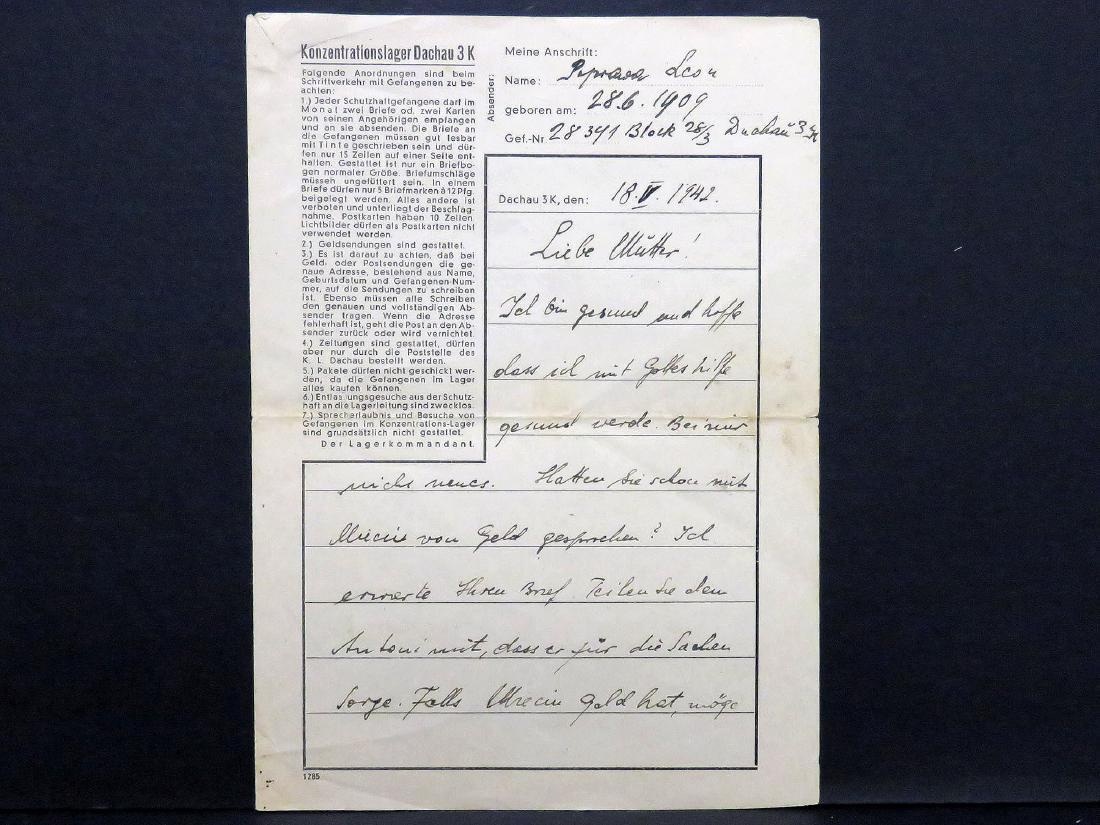 Konzentrationslager Dachau 3 K
Folgende Anordnungen sind beim
Schriftverkehr mit Gefangenen zu be-
achten:
1.) Jeder Schutzhaftgefangene darf im
Monat zwei Briefe od. zwei Karten
von seinen Angehörigen empfangen
und an sie absenden. Die Briefe an
die Gefangenen müssen gut lesbar
mit Tinte geschrieben sein und dür-
fen nur 15 Zeilen auf einer Seite ent-
halten. Gestattet ist nur ein Briefbo-
gen normaler Größe. Briefumschläge
müssen ungefüttert sein. In einem
Briefe dürfen nur 5 Briefmarken à 12 Pfg.
beigelegt werden. Alles andere ist
verboten und unterliegt der Beschlag-
nahme. Postkarten haben 10 Zeilen.
Lichtbilder dürfen als Postkarten nicht
verwendet werden.
2.) Geldsendungen sind gestattet.
3.) Es ist darauf zu achten, daß bei
Geld- oder Postsendungen die ge-
naue Adresse, bestehend aus Name,
Geburtsdatum und Gefangenen-Num-
mer, auf die Sendungen zu schreiben
ist. Ebenso müssen alle Schreiben
den genauen und vollständigen Ab-
sender tragen. Wenn die Adresse
fehlerhaft ist, geht die Post an den Ab-
sender zurück oder wird vernichtet.
4.) Zeitungen sind gestattet, dürfen
aber nur durch die Poststelle des
K. L. Dachau bestellt werden.
5.) Pakete dürfen nicht geschickt wer-
den, da die Gefangenen im Lager
alles kaufen können.
6.) Entlassungsgesuche aus der Schutz-
haft an die Lagerleitung sind zwecklos.
7.) Sprecherlaubnis und Besuche von
Gefangenen im Konzentrations-Lager
sind grundsätzlich nicht gestattet.
Der Lagerkommandant.
Absender:
Meine Anschrift:
Name: Leon
geboren am: 28.6.1909
Gef.-Nr. 28391 Block 28/3 Dachau 3 K
Dachau 3 K, den: 18.V.1942.
Liebe Mutter!
Ich bin gesund und hoffe
dass ich mit Gottes hilfe
gesund werde. Bei mir
nichts neues. Hatten Sie schon mit
von Geld gesprochen? Ich
erwarte Ihren Brief. Teilen Sie dem
Antoni mit, dass er für die Sachen
Sorge. Falls Geld hat, möge
1285